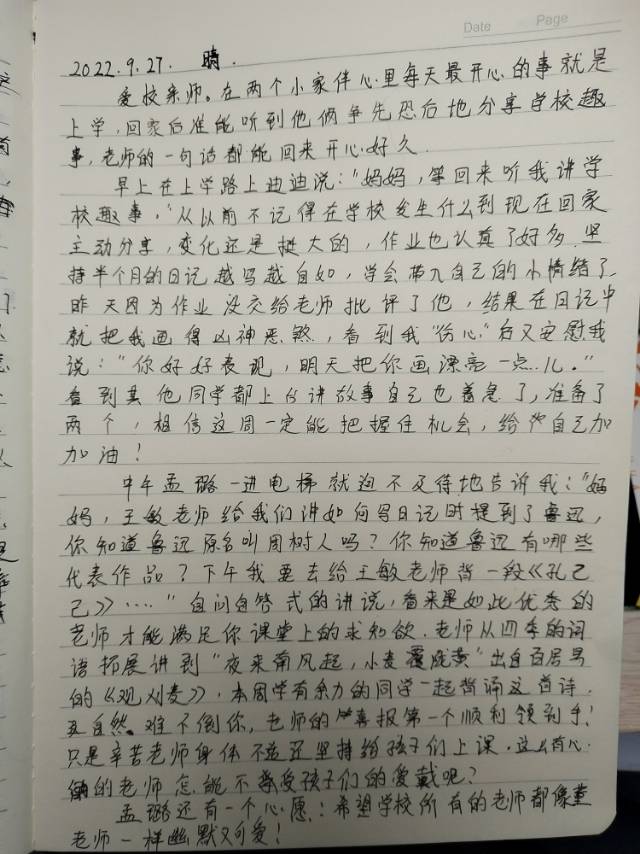 Date Page
2022.9.27. 晴.
爱校亲师。在两个小家伴心里每天最开心的事就是
上学,回家后准能听到他俩争先恐后地分享学校趣
事,老师的一句话都能回来开心好久.
早上在上学路上迪迪说:“妈妈,等回来听我讲学
校趣事。”从以前不记得在学校发生什么到现在回家
主动分享,变化还是挺大的,作业也认真了好多.坚
持半个月的日记越写越自如,学会带入自己的小情绪了.
昨天因为作业没交给老师批评了他,结果在日记中
就把我画得凶神恶煞,看到我“伤心”后又安慰我
说:“你好好表现,明天把你画漂亮一点儿。”
看到其他同学都上台讲故事自己也着急了,准备了
两个,相信这周一定能把握住机会,给自己加
加油!
中午孟璐一进电梯就迫不及待地告诉我:“妈
妈,王敏老师给我们讲如何写日记时提到了鲁迅,
你知道鲁迅原名叫周树人吗?你知道鲁迅有哪些
代表作品?下午我要去给王敏老师背一段《孔乙
己》……”自问自答式的讲说,看来是如此优秀的
老师才能满足你课堂上的求知欲.老师从四季的词
语拓展讲到“夜来南风起,小麦覆陇黄”出自白居易
的《观刈麦》,本周学有余力的同学一起背诵这首诗.
自然难不倒你,老师的喜报第一个顺利领到手!
只是辛苦老师身体不适还坚持给孩子们上课.这么有心
的老师怎能不享受孩子们的爱戴呢?
孟璐还有一个心愿:希望学校所有的老师都像董
老师一样幽默又可爱!